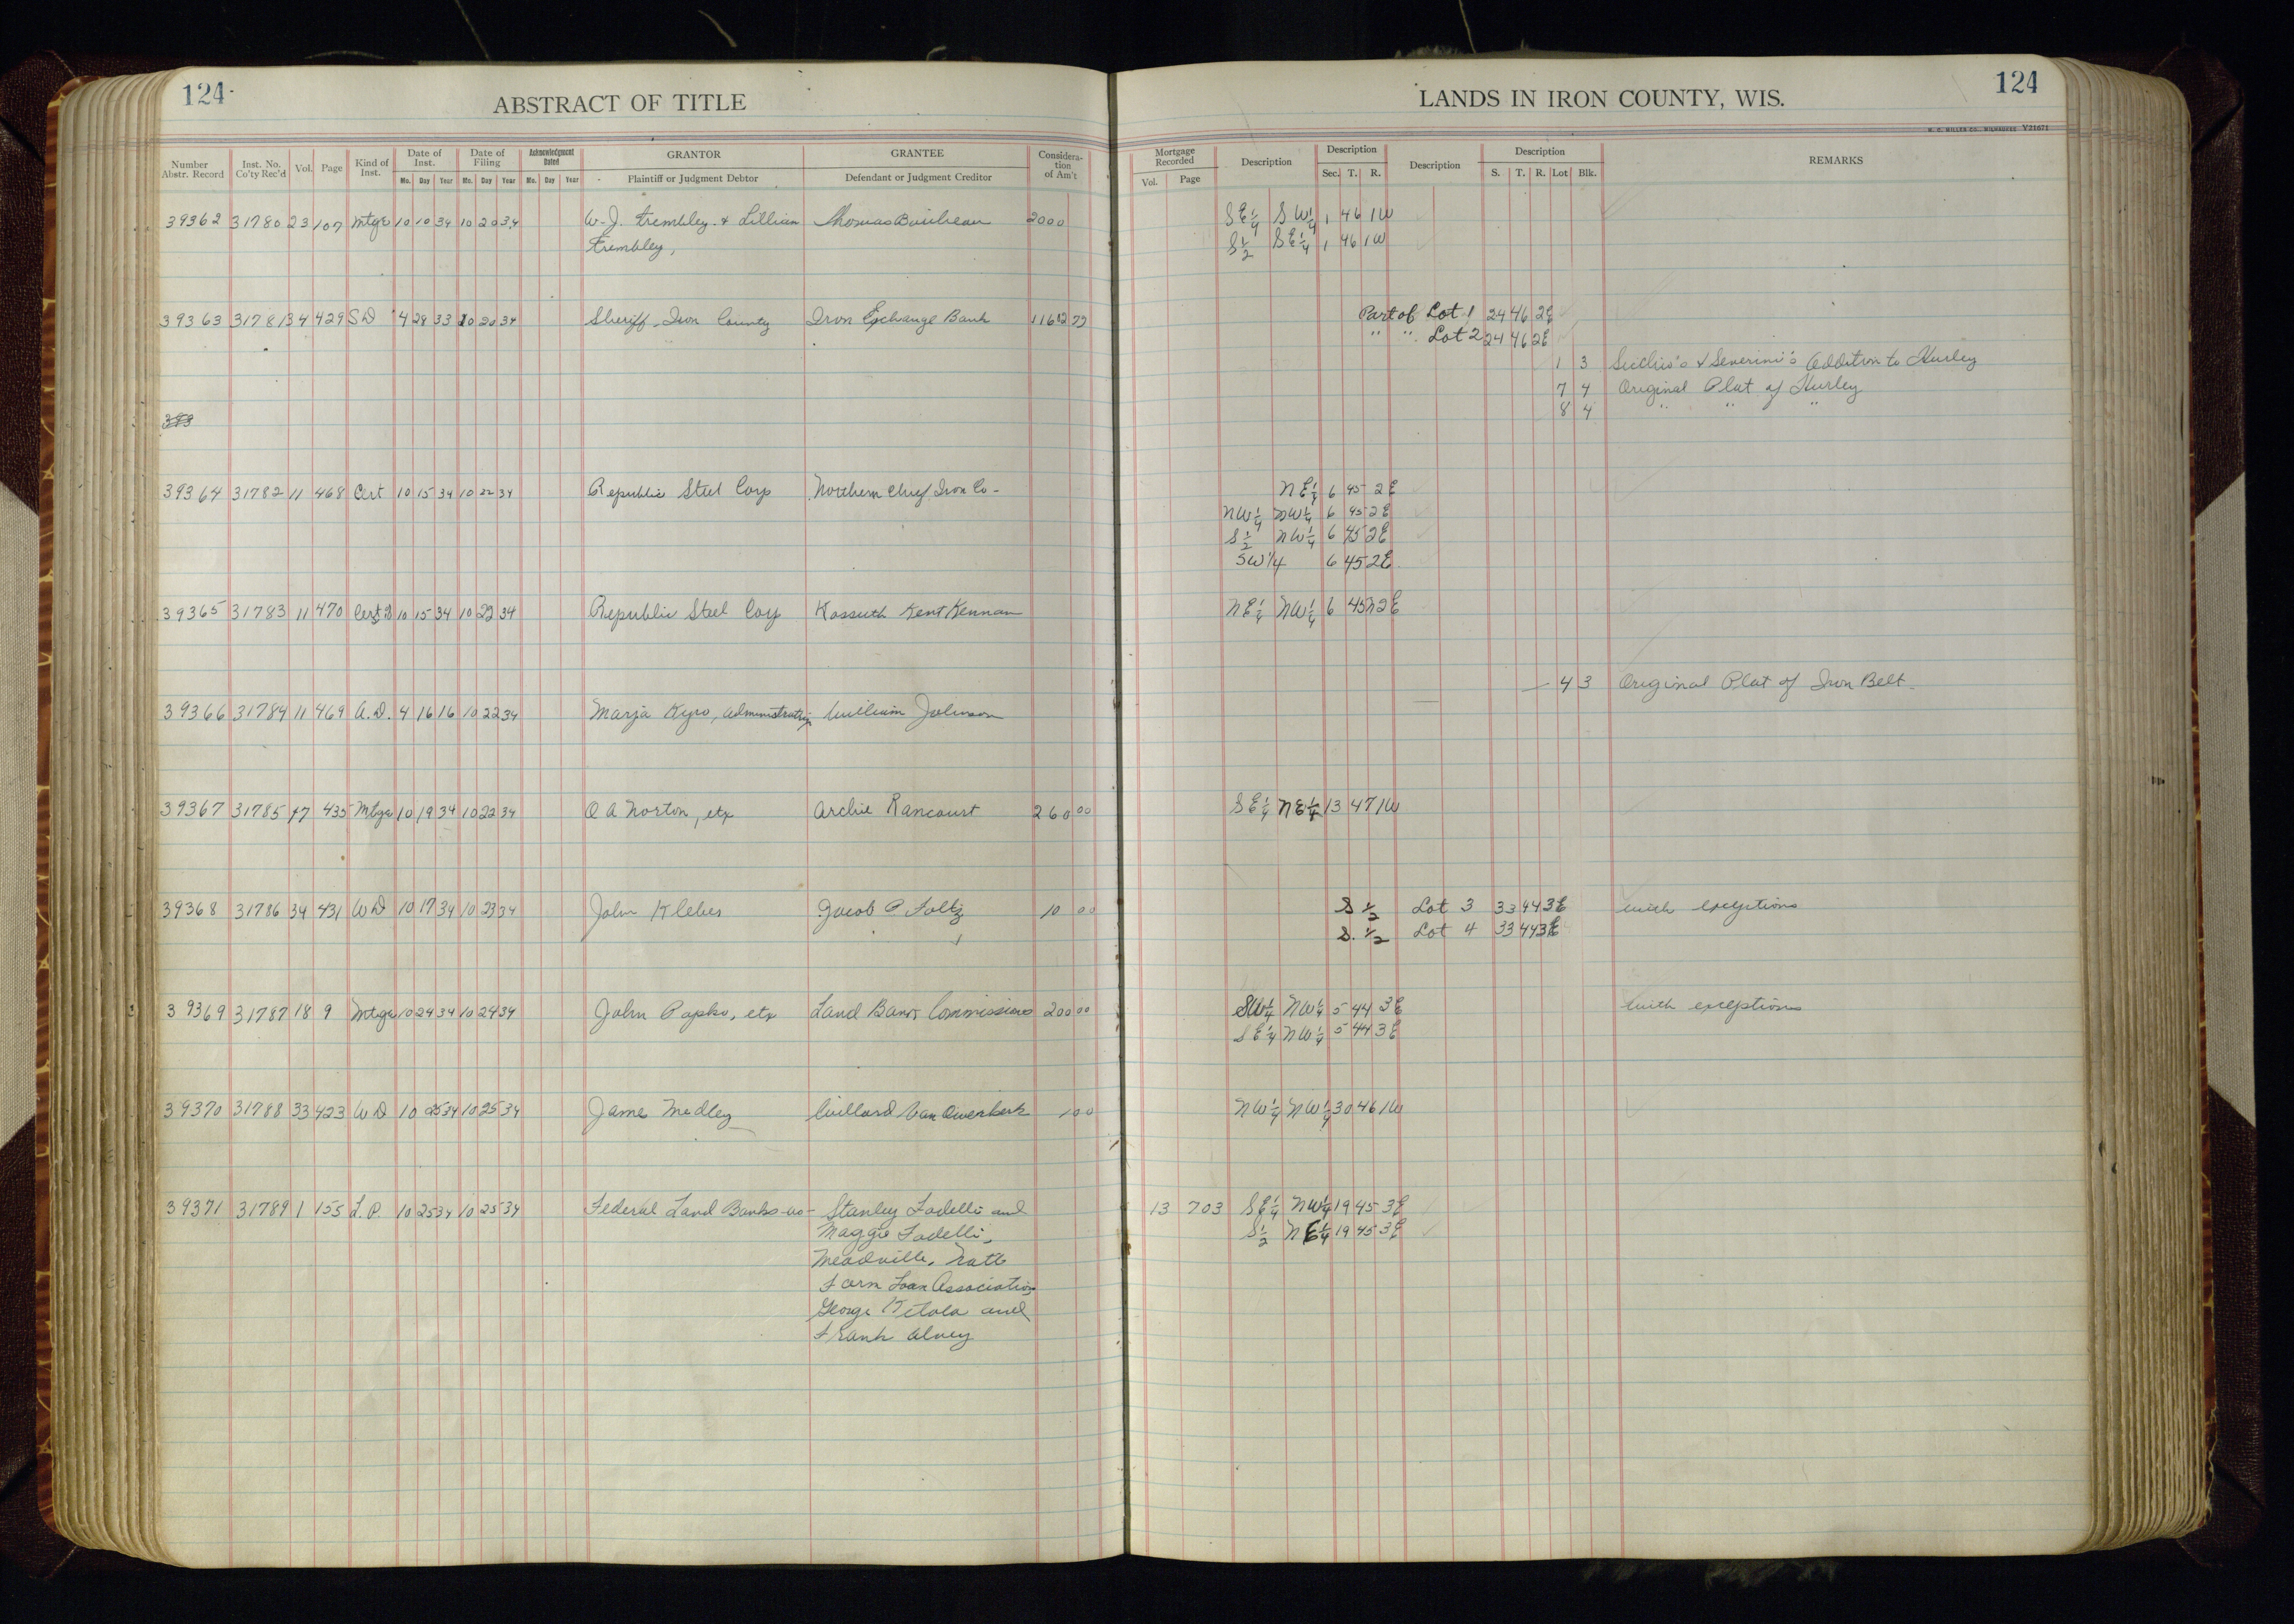 124
ABSTRACT OF TITLE
Number Abstr. Record | Inst. No. Co'ty Rec'd | Vol. | Page | Kind of Inst. | Date of Inst. Mo. Day Year | Date of Filing Mo. Day Year | Acknowledgment Dated Mo. Day Year | GRANTOR Plaintiff or Judgment Debtor | GRANTEE Defendant or Judgment Creditor | Considera-tion of Am't
39362 31780 23 107 Mtge 10 10 34 10 20 34 W. J. Trembley & Lillian Thomas 2000
Trembley,
39363 31781 34 429 SD 4 28 33 10 20 34 Sheriff, Iron County Iron Exchange Bank
393
39364 31782 11 468 Cert 10 15 34 10 22 34 Republic Steel Corp Northern Chief Iron Co-
39365 31783 11 470 10 15 34 10 22 34 Republic Steel Corp Kossuth Kent Kennan
39366 31784 11 469 A.D. 4 16 16 10 22 34 Marja Kyro, administratrix William Johnson
39367 31785 17 435 Mtge 10 19 34 10 22 34 O A Norton, etx Archie Rancourt 260 00
39368 31786 34 431 WD 10 17 34 10 23 34 John Klebes Jacob P Foltz 10 00
39369 31787 18 9 Mtge 10 24 34 10 24 34 John Papko, etx Land Bank Commissioner 200 00
39370 31788 33 423 WD 10 25 34 10 25 34 James Medley Willard Van Ouwerkerk 1 00
39371 31789 1 155 L.P. 10 25 34 10 25 34 Federal Land Banks-vs- Stanley Fadelli and
Maggie Fadelli,
Meadville, Natl
Farm Loan Association
George Ketola and
Frank Alvey
124
LANDS IN IRON COUNTY, WIS.
H. C. MILLER CO., MILWAUKEE Y21671
Mortgage Recorded Vol. Page | Description | Description Sec. T. R. | Description | Description S. T. R. Lot Blk. | REMARKS
SE¼ SW¼ 1 46 1W
S½ SE¼ 1 46 1W
Part of Lot 1 24 46 2E
" " Lot 2 24 46 2E
1 3 & Severini's Addition to Hurley
7 4 Original Plat of Hurley
8 4 " " "
NE¼ 6 45 2E
NW¼ NW¼ 6 45 2E
S½ NW¼ 6 45 2E
SW¼ 6 45 2E
NE¼ NW¼ 6 45N 2E
4 3 Original Plat of Iron Belt
SE¼ NE¼ 13 47 1W
S ½ Lot 3 33 44 3E with exceptions
S. ½ Lot 4 33 44 3E
SW¼ NW¼ 5 44 3E with exceptions
SE¼ NW¼ 5 44 3E
NW¼ NW¼ 30 46 1W
13 703 SE¼ NW¼ 19 45 3E
S½ NE¼ 19 45 3E